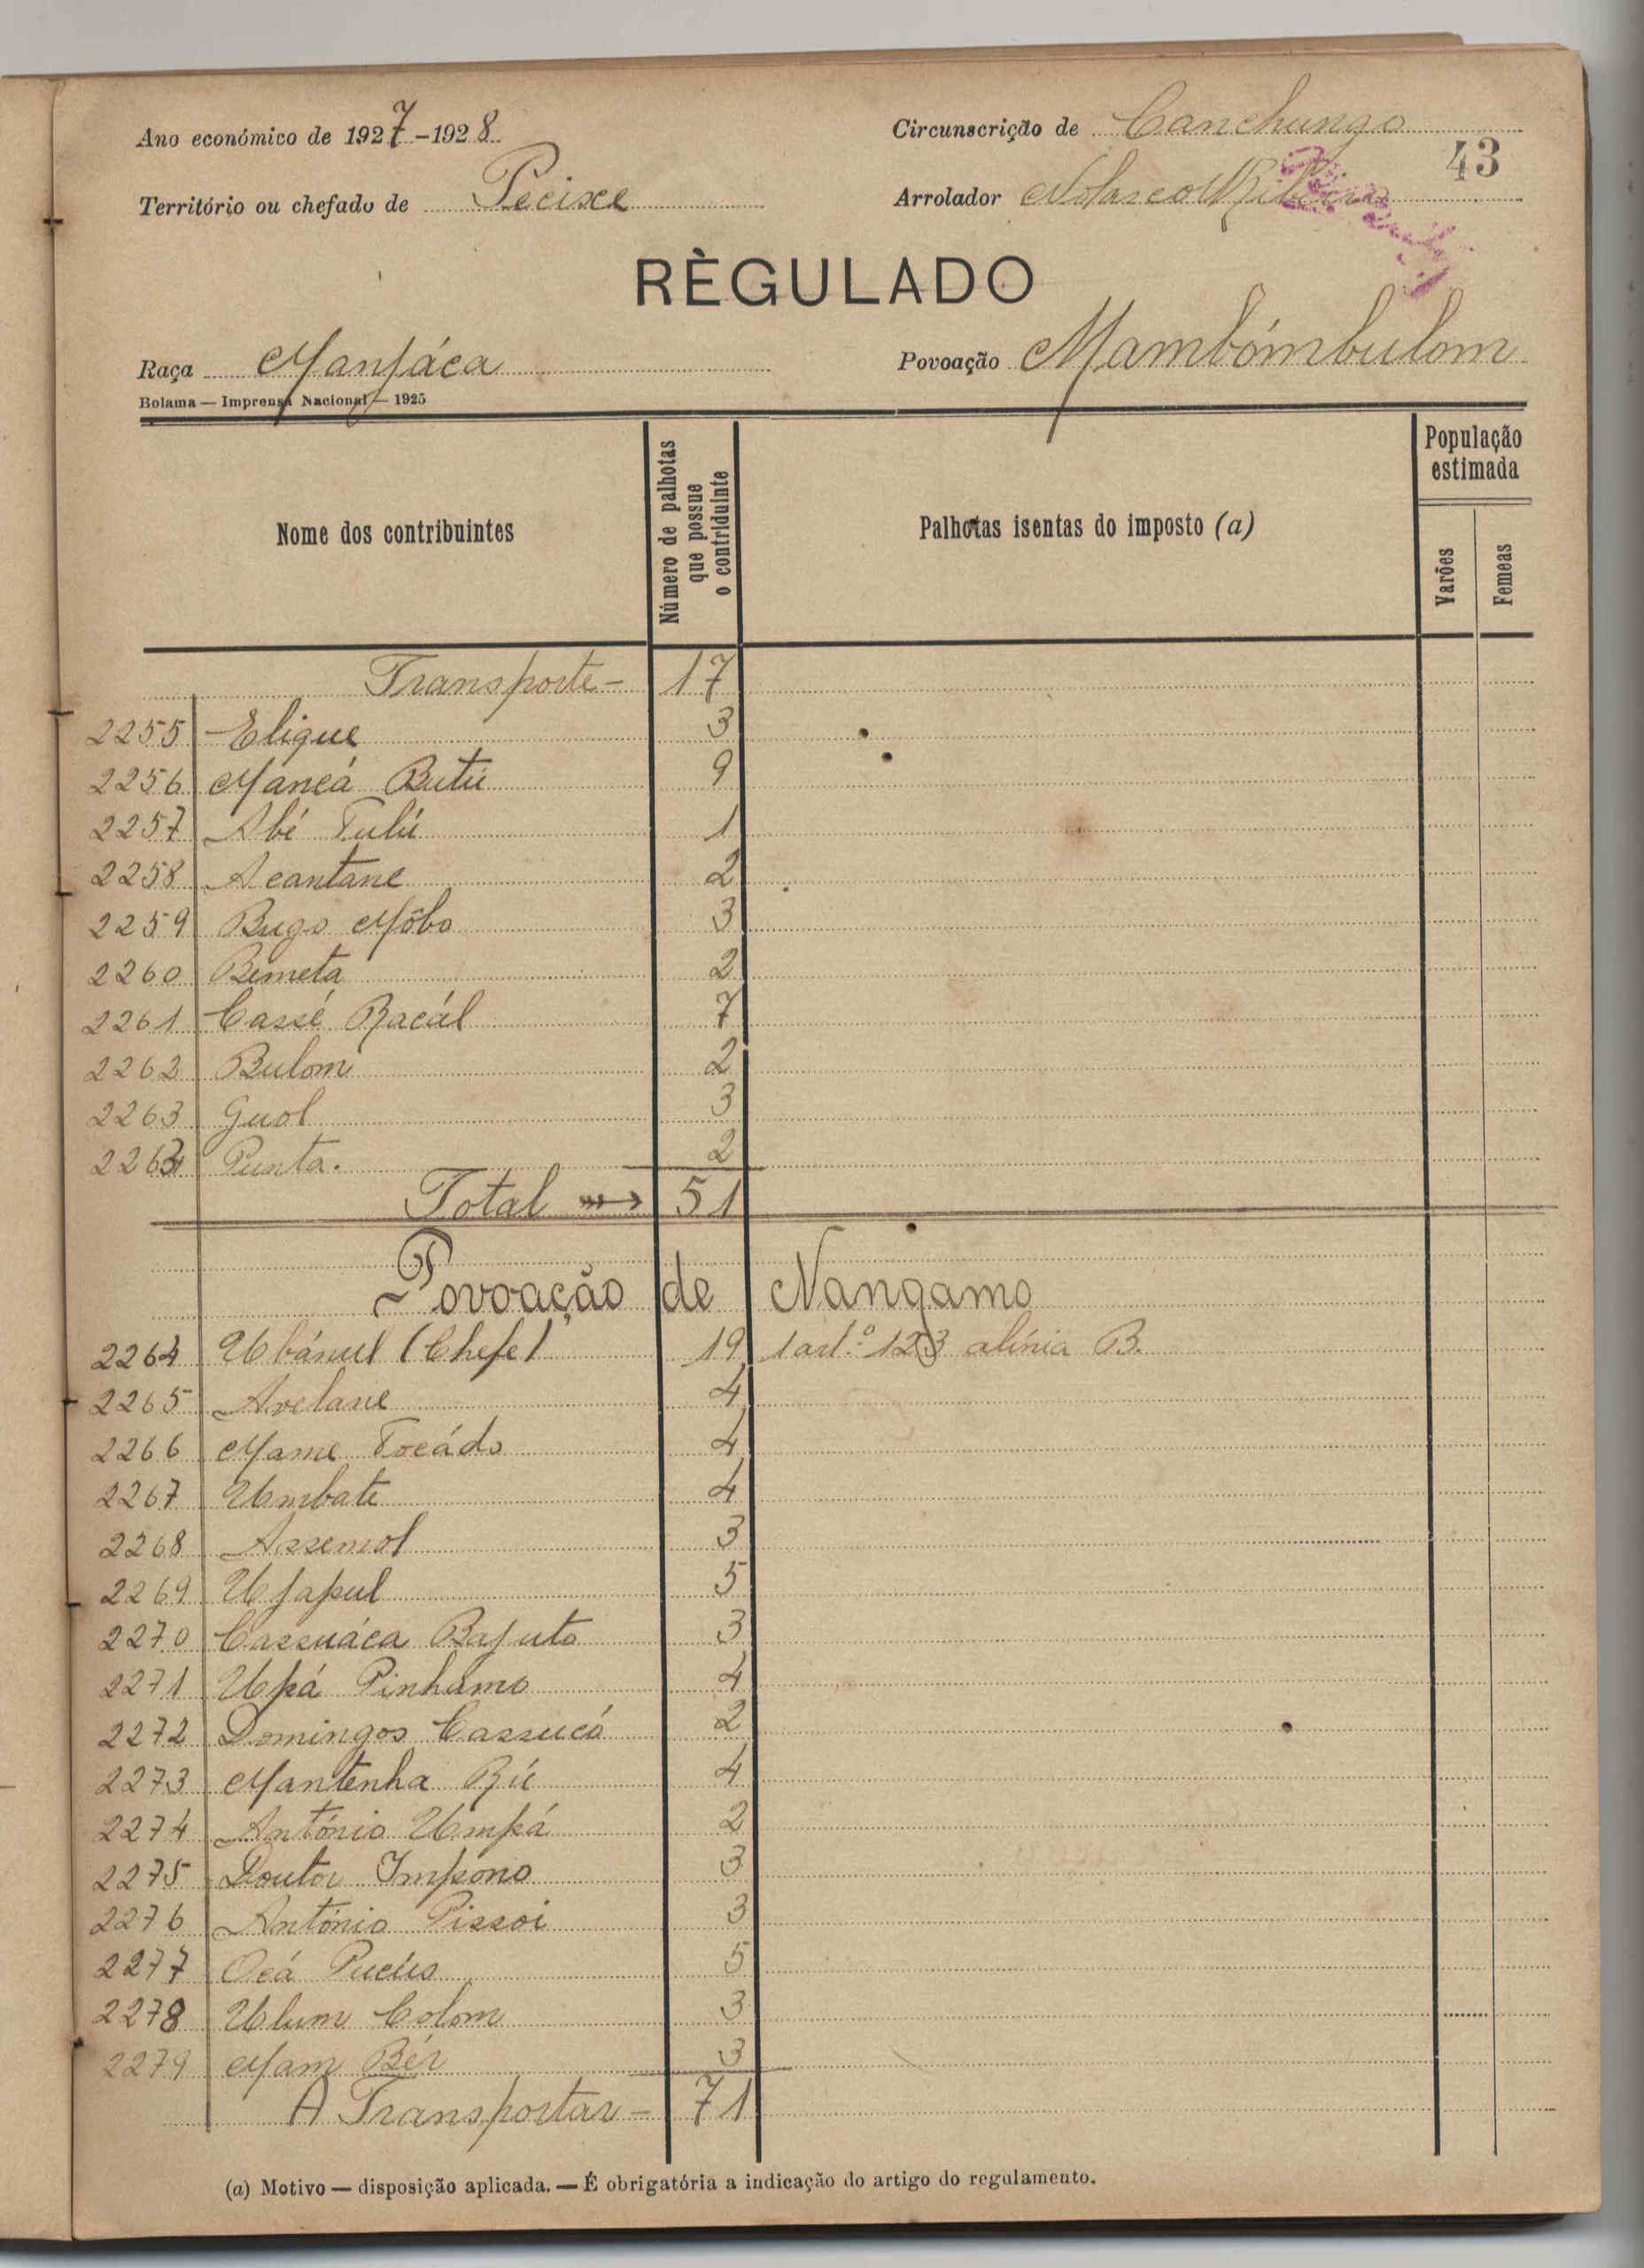 Ano económico de 1927-1928
Circunscrição de Canchungo
43
Território ou chefado de Pecixe
Arrolador Nolasco Ribeiro
RÈGULADO
Raça Manjáca
Povoação Mambómbulom
Bolama — Imprensa Nacional — 1925
Nome dos contribuintes
Número de palhotas que possue o contriduinte
Palhotas isentas do imposto (a)
População estimada
Varões
Femeas
Transporte - 17
2255 Elique 3
2256 Mancá Butú 9
2257 Abé Tulú 1
2258 Acantane 2
2259 Bugo Môbo 3
2260 Bemeta 2
2261 Cassé Bacál 7
2262 Bulom 2
2263 Guol 3
2263 Punta. 2
Total 51
Povoação de Nangamo
2264 Ubánul (Chefe) 19 1 art.º 123 alínia B.
2265 Avelane 4
2266 Mame Tocádo 4
2267 Umbate 4
2268 Assenol 3
2269 Ujapul 5
2270 Cassuáca Bajuto 3
2271 Upá Pinhamo 4
2272 Domingos Cassucó 2
2273 Mantenha Bíc 4
2274 António Umpá 2
2275 Doutor Impono 3
2276 António Pissoi 3
2277 Ocá Pucúo 5
2278 Ulum Colom 3
2279 Mam Bér 3
A Transportar - 71
(a) Motivo — disposição aplicada. — É obrigatória a indicação do artigo do regulamento.